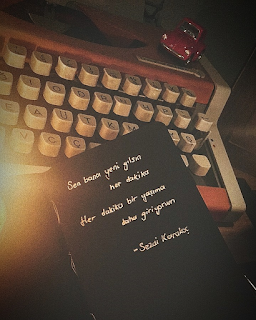 Sen bana yeni yılsın
her dakika
Her dakika bir yaşıma
daha giriyorum
- Sezai Karakoç